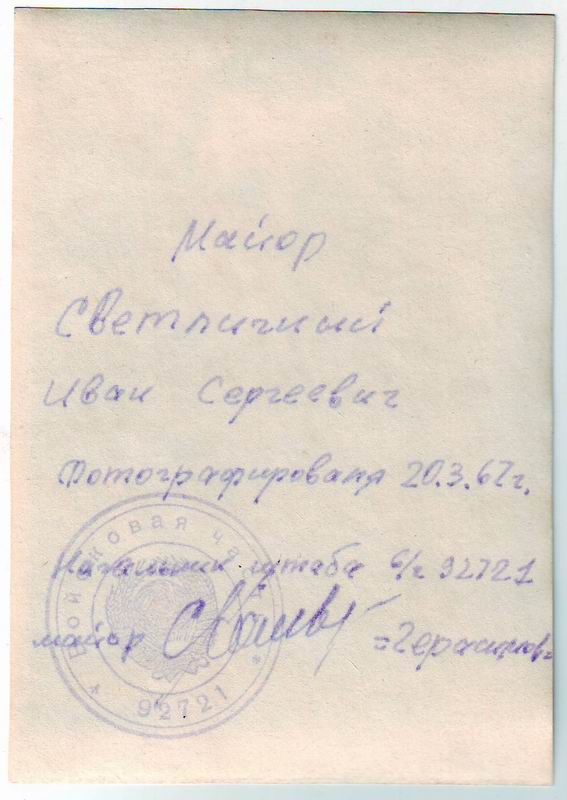 Майор
Светличный
Иван Сергеевич
Фотографирован 20.3.62г.
Начальник штаба в/ч 92721
майор =Герасимов=
Войсковая часть
* 92721 *